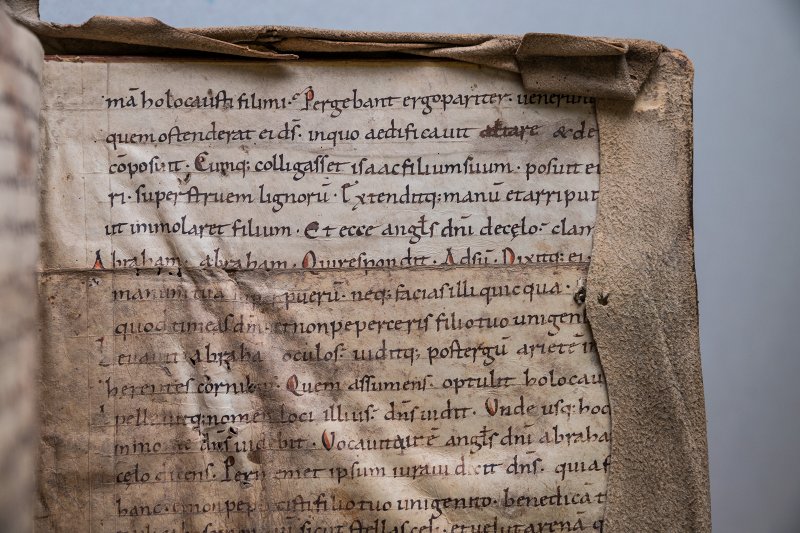 mā holocausti fili mi. Pergebant ergo pariter. venerunt
quem ostenderat ei ds̄. in quo aedificavit altare & de
cōposuit. Cumq; colligasset isaac filium suum. posuit e
ri. super struem lignorū. Extenditq; manū et arripuit
ut immolaret filium. Et ecce angls dn̄i de cęlo. clam
Abraham. abraham. Qui respondit. Adsū. Dixitq; ei.
manum tuā super puerū. neq; facias illi quicquā.
quod timeas dm̄. et non peperceris filio tuo unigen
Levavit abrahā oculos. viditq; post tergū arietē in
herentē cornib. Quem assumens. optulit holocau
pellavitq; nomen loci illius. dn̄s videt. Unde usq; hod
monte dn̄s videbit. Vocavit autē angls dn̄i abraha
cęlo dicens. Per memet ipsum iuravi dicit dn̄s. quia f
hanc. et non pepercisti filio tuo unigenito. benedicā t
sicut stellas cęl. et velut arenā q